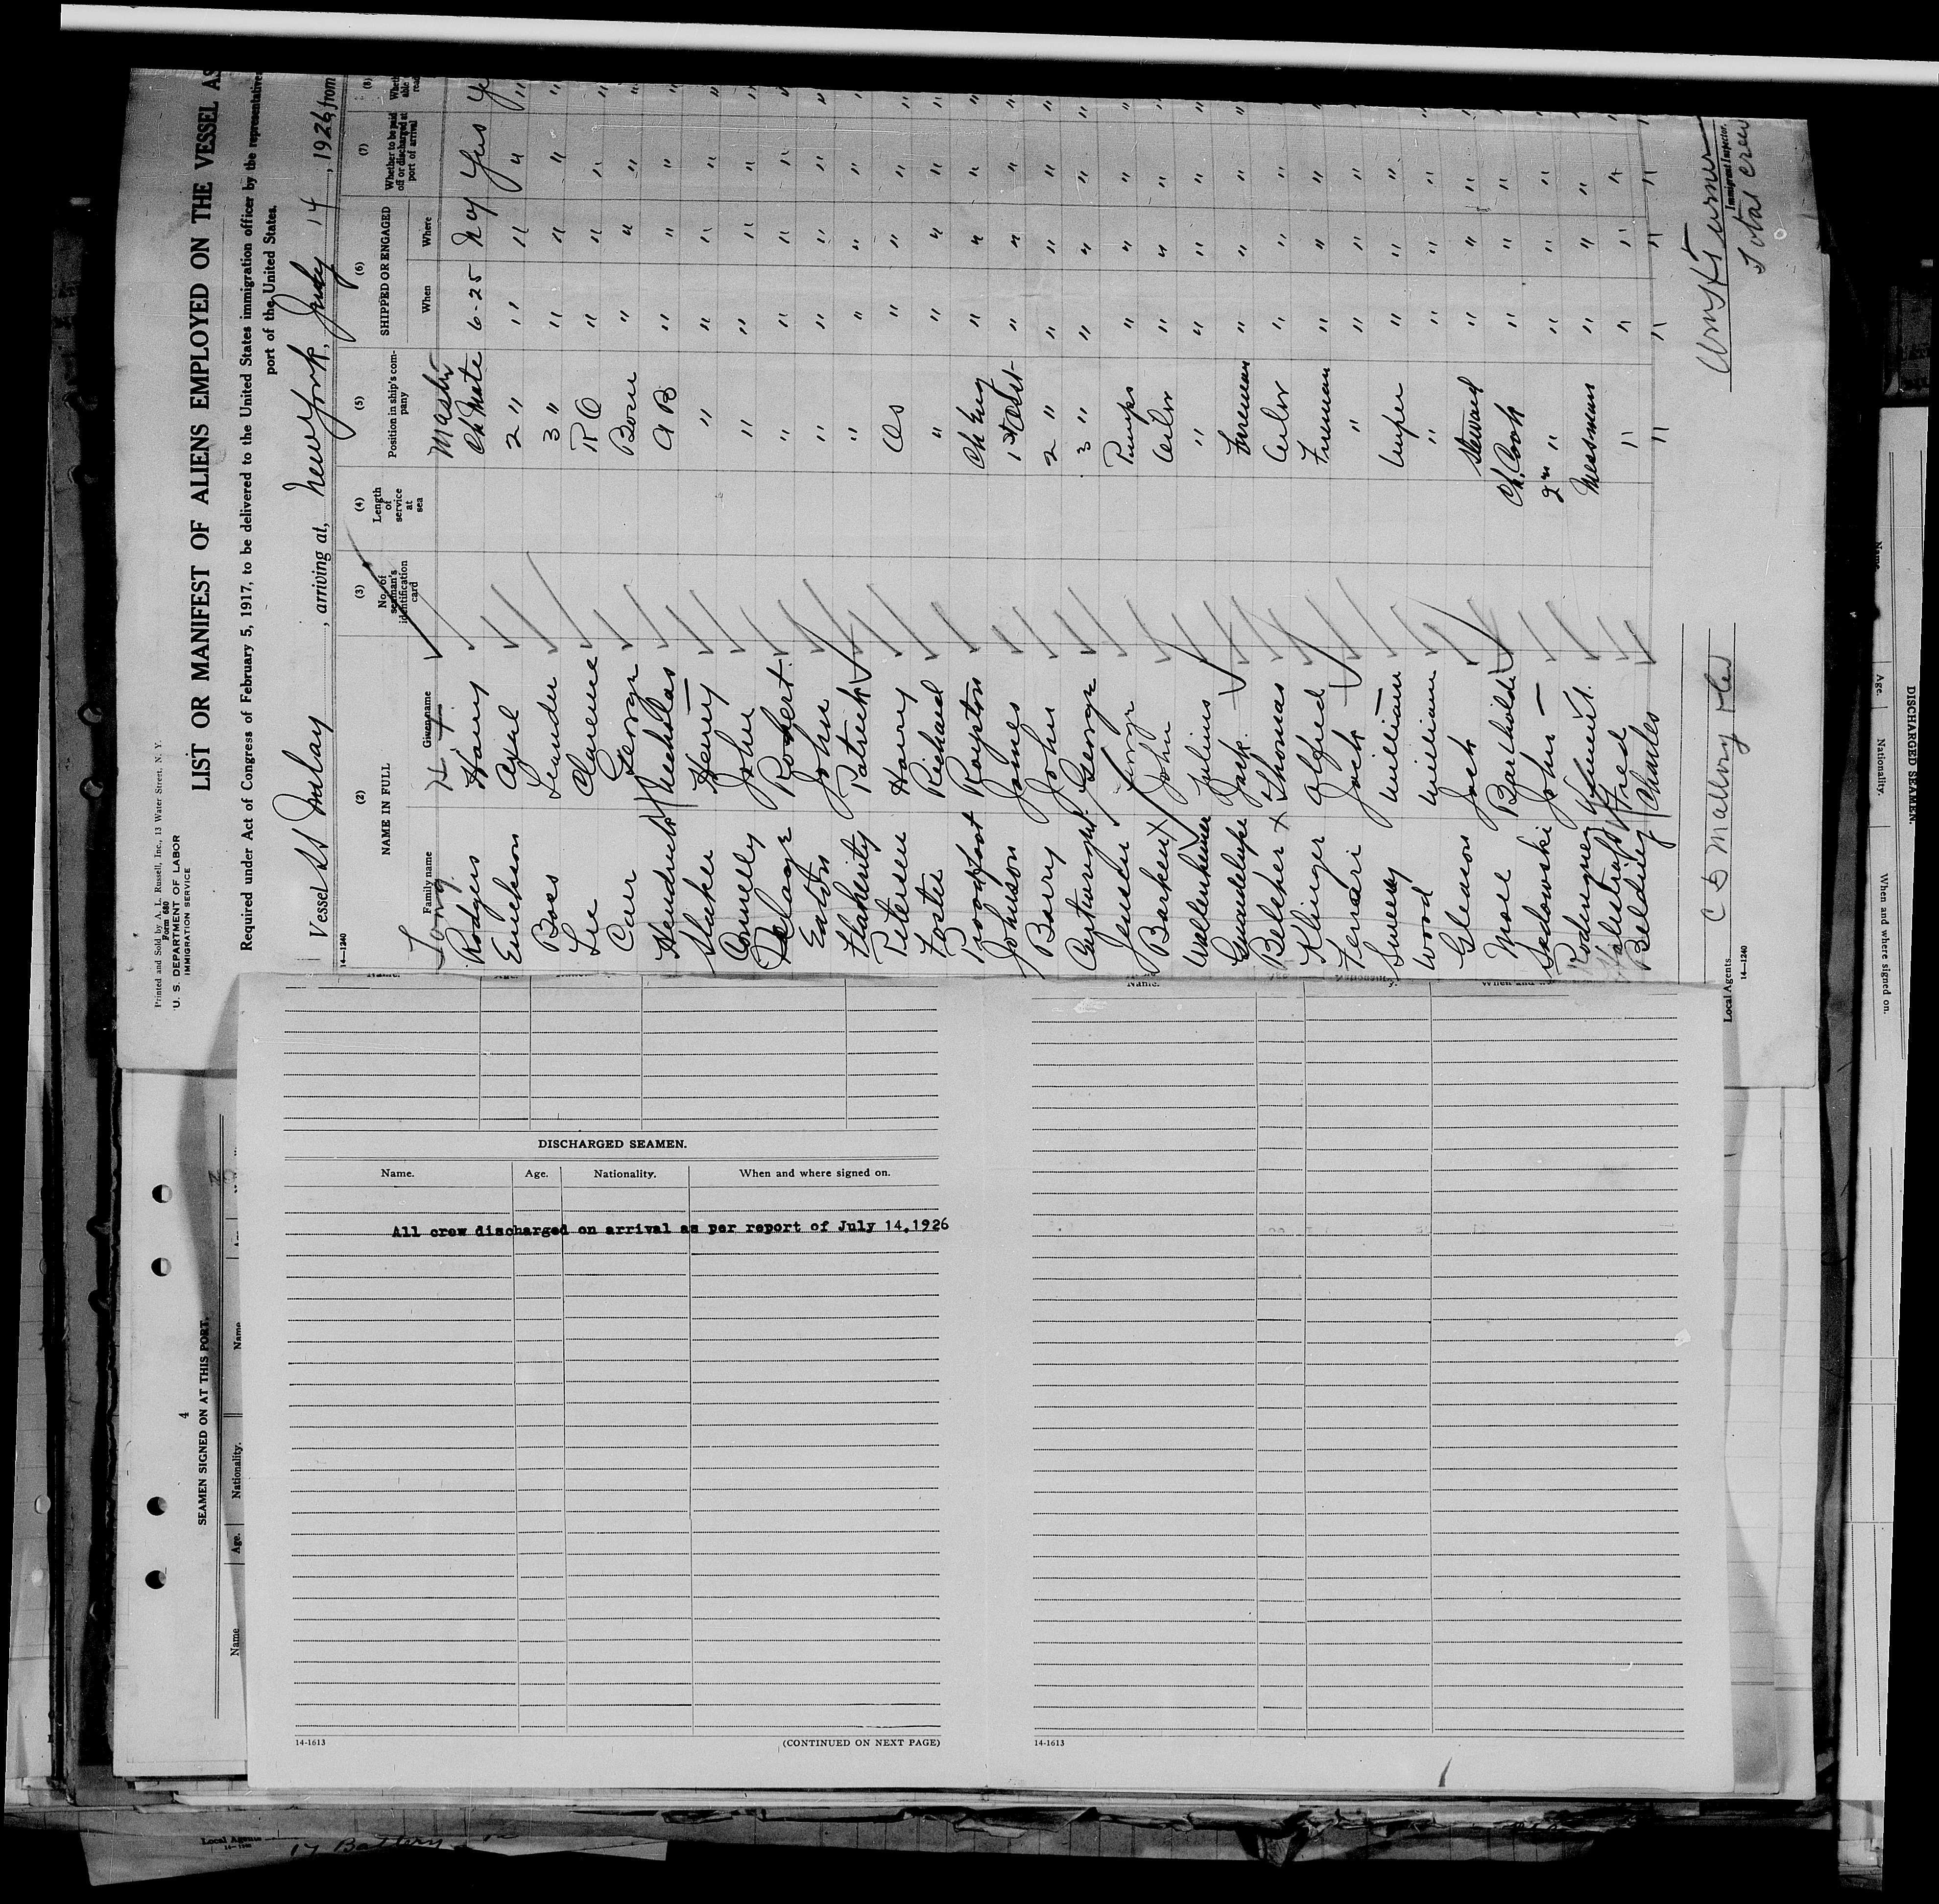 Printed and Sold by A. L. Russell, Inc., 13 Water Street, N. Y.
Form 680
U. S. DEPARTMENT OF LABOR
IMMIGRATION SERVICE
LIST OR MANIFEST OF ALIENS EMPLOYED ON THE VESSEL AS
Required under Act of Congress of February 5, 1917, to be delivered to the United States immigration officer by the representative
port of the United States.
Vessel SS Imlay, arriving at, New York, July 14, 1926, from
14—1240
(2) (3) (4) (5) (6) (7) (8)
NAME IN FULL No. of seaman's identification card Length of service at sea Position in ship's company SHIPPED OR ENGAGED Whether to be paid off or discharged at port of arrival
Family name Given name When Where
Long Master
Rodgers Harry Ch Mate 6-25 NY Yes
Erickson Axel 2 " " " "
Boes Leander 3 " " " "
Lee Clarence RO " " "
Carr George Bosn " " "
Nicholas AB " " "
Slaker Henry " " " "
Connelly John " " " "
Robert " " " "
Eaton John " " " "
Flaherity Patrick " " " "
Petersen Harry OS " " "
Foster Richard " " " "
Proodfoot Royston Ch Eng " " "
Johnson James 1st Asst " " "
Barry John 2 " " " "
Cartwright George 3 " " " "
Jensen George Pumps " " "
Barken X John Oiler " " "
Julius " " " "
Jack Fireman " " "
Belcher X Thomas Oiler " " "
Klinger Alfred Fireman " " "
Ferrari Jack " " " "
Sweeney William Wiper " " "
Wood William " " " "
Gleason Jack Steward " " "
Mose Barthold Ch. Cook " " "
Sadowski John 2nd " " " "
Messman " " "
Fred " " " "
Belding Charles " " " "
Local Agents C D Mallory
14—1240
Wm H Turner
Immigrant Inspector.
Total crew
DISCHARGED SEAMEN.
Name. Age. Nationality. When and where signed on.
All crew discharged on arrival as per report of July 14,1926
14-1613
(CONTINUED ON NEXT PAGE)
14-1613
4
SEAMEN SIGNED ON AT THIS PORT.
Name. Age. Nationality. Name
DISCHARGED SEAMEN.
Name. Age. Nationality. When and where signed on.
Local Agents
17 Battery